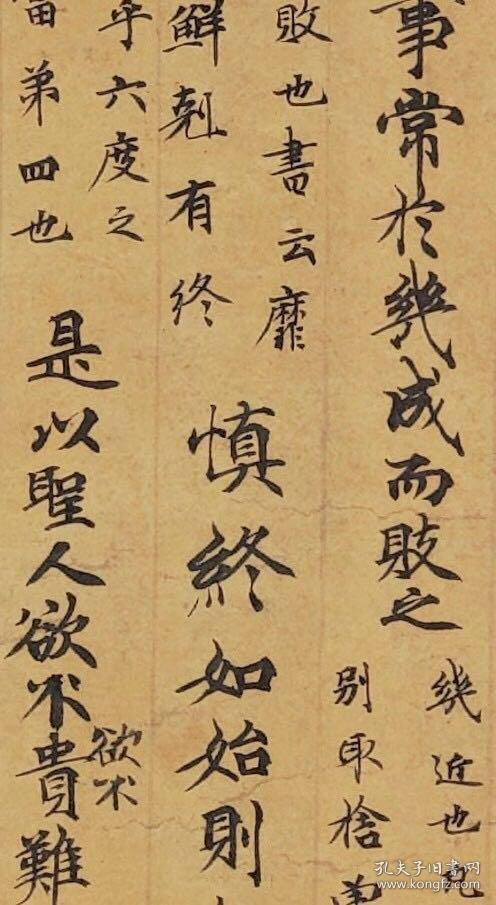 事常於幾成而敗之
幾近也凡
別取捨
敗也書云靡
鮮剋有終
慎終如始則
乎六度之
第四也
是以聖人欲不貴難
欲不
孔夫子旧书网
www.kongfz.com